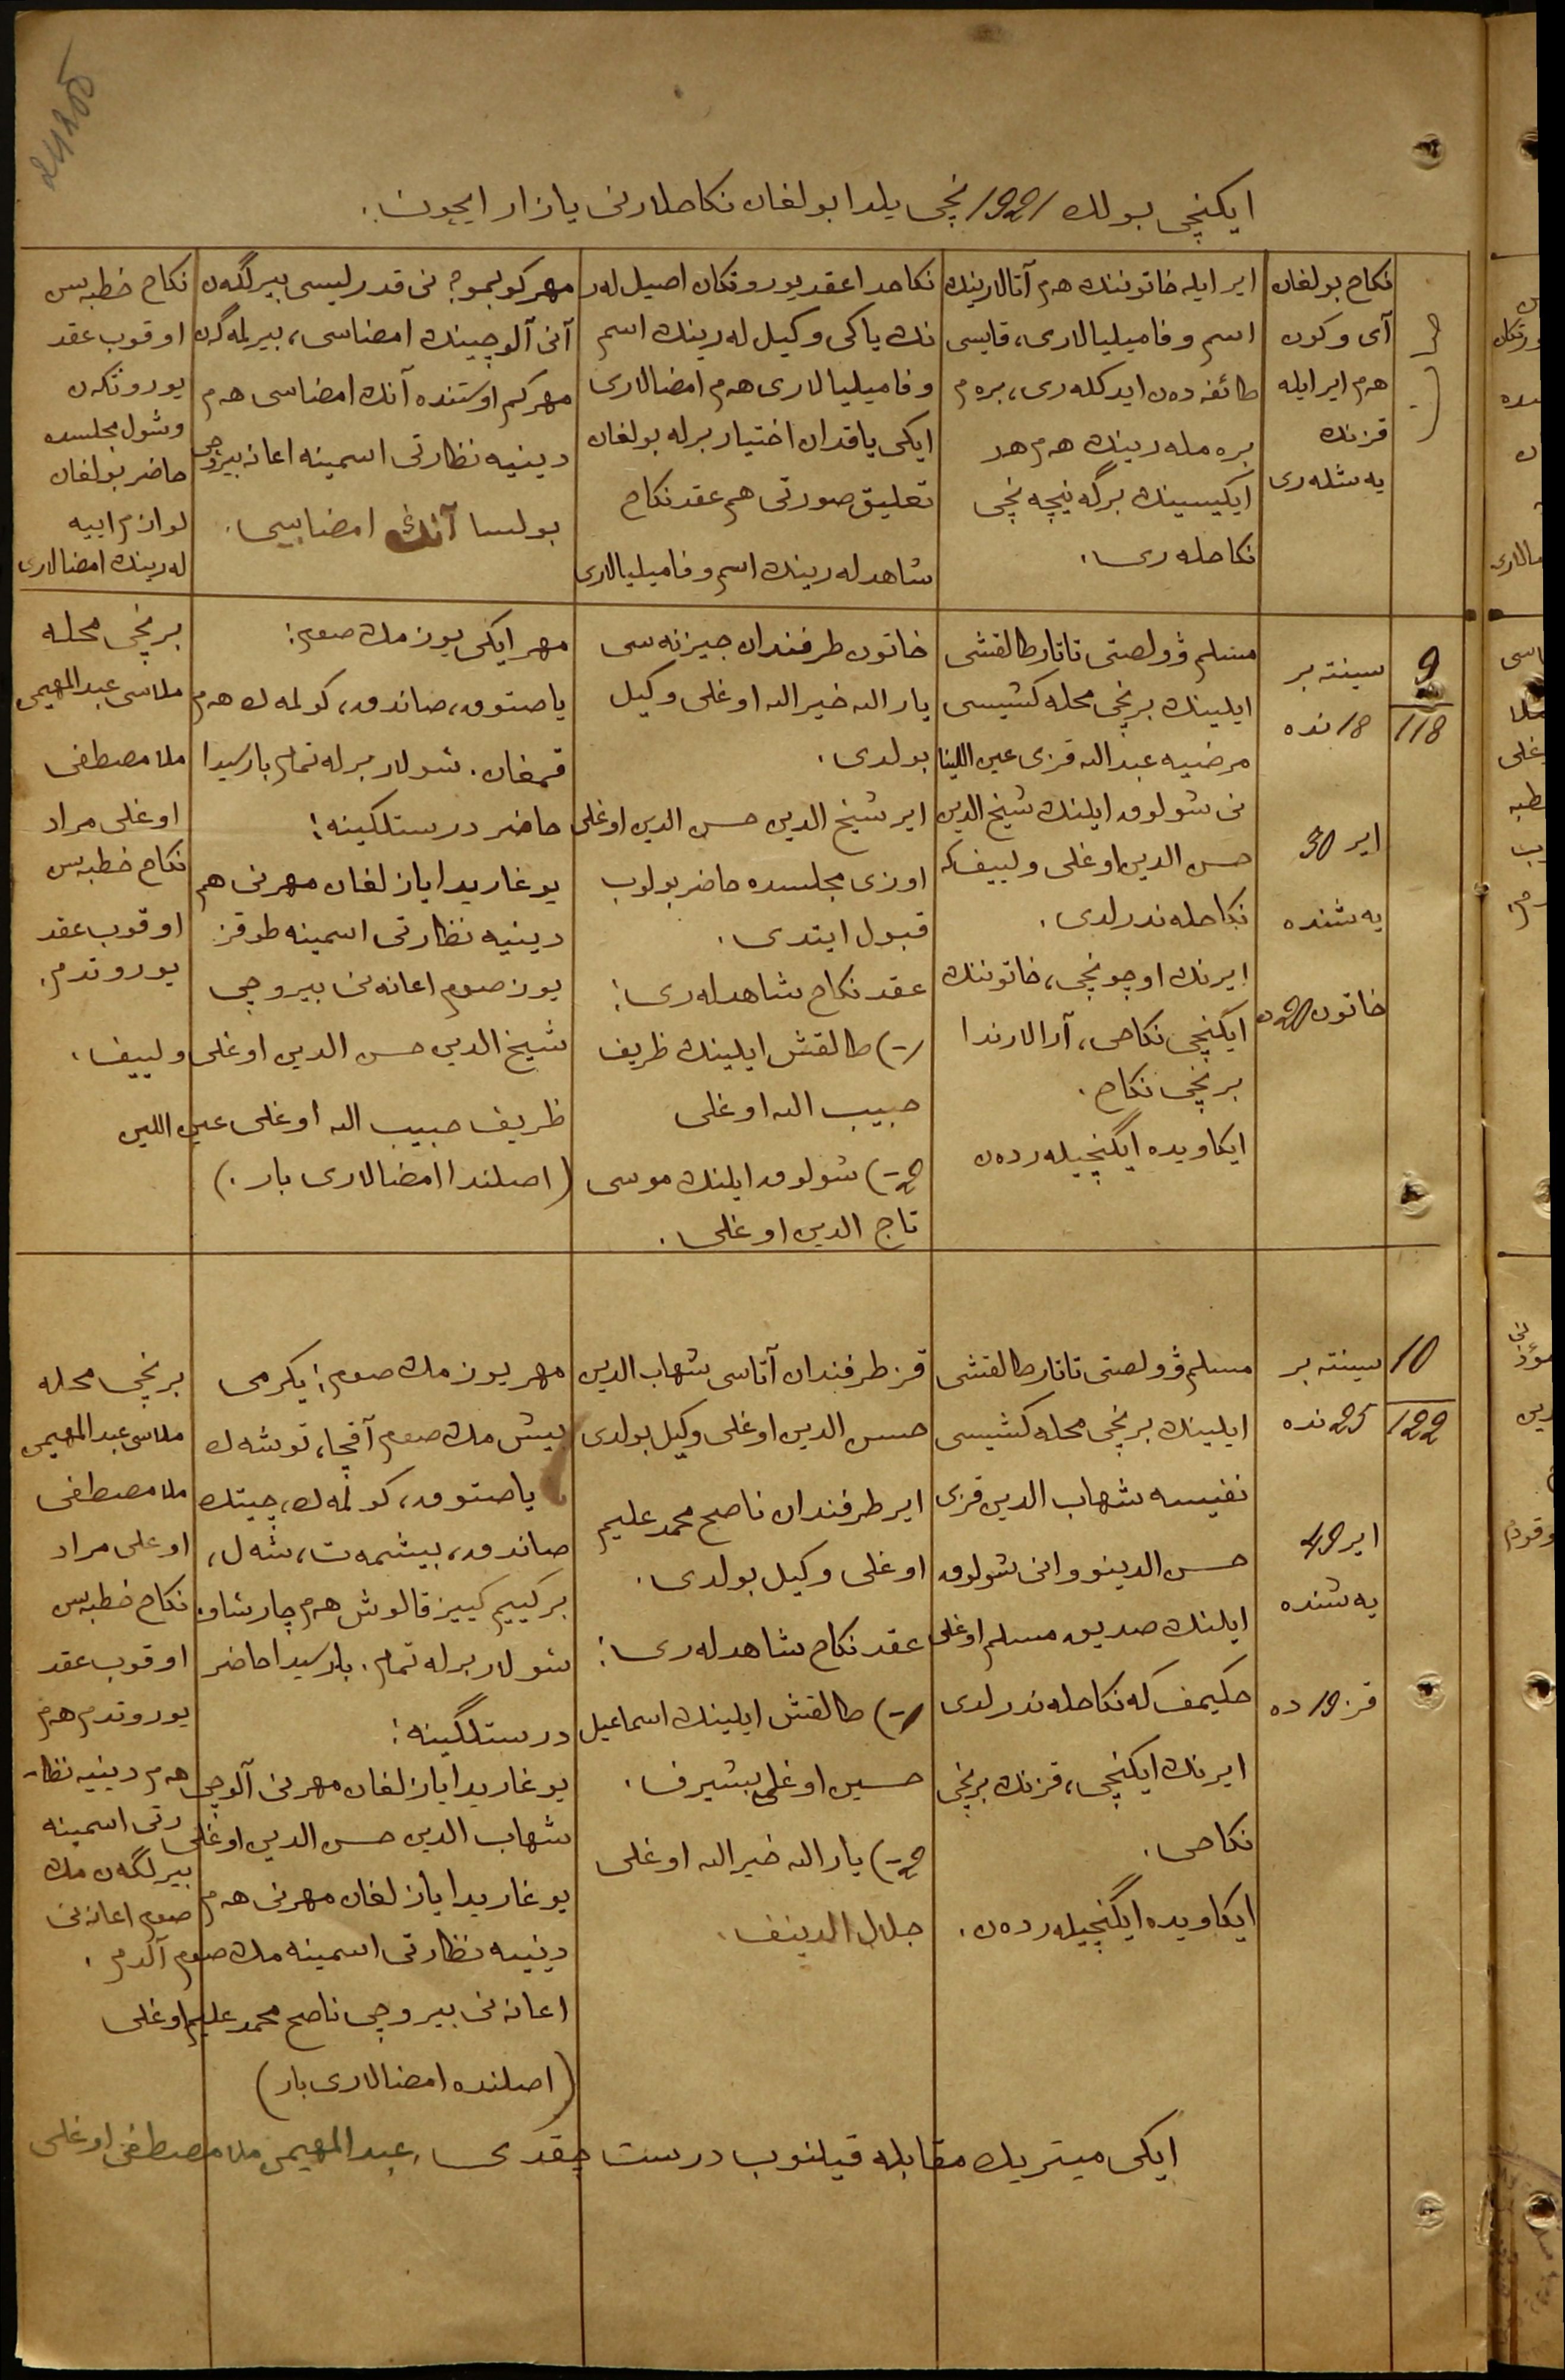 ایكنچی بولك 1921 نچی یلدا بولغان نكاحلارنی یازار ایچون.
نكاح بولغان
آی و كون
هم ایر ایله
قزنك
یه شله ری
ایر ایله خاتوننك هم آتالارینك
اسم و فامیلیالاری، قایسی
طائفه دن ایدكله ری، برهم
بره مله رینك هم هر
ایكیسینك برگه نیچه نچی
نكاحله ری.
نكاحدا عقد یوروتكان اصیل له ر
نك یاكی وكیل له رینك اسم
و فامیلیالاری هم امضالاری
ایكی یاقدان اختیار برله بولغان
تعلیق صورتی هم عقد نكاح
شاهدله رینك اسم و فامیلیالاری
مهر كوبمو؟ نی قدرلیسی بیرلگه ن
آنی آلوچینك امضاسی، بیرلمه گن
مهر كم اوستنده آنك امضاسی هم
دینیه نظارتی اسمینه اعانه بیروچی
بولسا آنك امضاسی.
نكاح خطبه س
اوقوب عقد
یوروتكه ن
و شول مجلسده
حاضر بولغان
له رینك امضالاری
9
118
سینته بر
18 نده
ایر 30
یه شنده
خاتون 20 ده
مسلم ڤولصتی تاتار طالقشی
ایلینك برنچی محله كشیسی
مرضیه عبدالله قزی عین اللینا
نی شولوق ایلنك شیخ الدین
حسن الدین اوغلی ولییف كه
نكاحله ندرلدی.
ایرنك اوچونچی، خاتوننك
ایكنچی نكاحی، آرالارندا
برنچی نكاح.
ایكاویده ایگنچیله ردن
خاتون طرفندان جیزنه سی
یارالله خیرالله اوغلی وكیل
بولدی.
ایر شیخ الدین حسن الدین اوغلی
اوزی مجلسده حاضر بولوب
قبول ایتدی.
عقد نكاح شاهدله ری:
1-) طالقش ایلینك ظریف
حبیب الله اوغلی
2-) شولوق ایلنك موسی
تاج الدین اوغلی.
مهر ایكی یوز مك صوم:
یاصتوق، صاندوق، كولمه ك هم
قمغان. شولار برله تمام بارسیدا
حاضر درستلكینه:
یوغاریدا یازلغان مهرنی هم
دینیه نظارتی اسمینه طوقز
یوز صوم اعانه نی بیروچی
شیخ الدین حسن الدین اوغلی ولییف.
ظریف حبیب الله اوغلی عین اللین
(اصلندا امضالاری بار.)
برنچی محله
ملاسی عبدالمهیمن
ملا مصطفی
اوغلی مراد
نكاح خطبه س
اوقوب عقد
یوروتدم.
10
122
سینته بر
25 نده
ایر 49
یه شنده
قز 19 ده
مسلم ڤولصتی تاتار طالقشی
ایلینك برنچی محله كشیسی
نفیسه شهاب الدین قزی
حسن الدینووانی شولوق
ایلنك صدیق مسلم اوغلی
حكیمف كه نكاحله ندرلدی
ایرنك ایكنچی، قزنك برنچی
نكاحی.
ایكاویده ایگنچیله ردن.
قز طرفندان آتاسی شهاب الدین
حسن الدین اوغلی وكیل بولدی
ایر طرفندان ناصح محمد علیم
اوغلی وكیل بولدی.
عقد نكاح شاهدله ری:
1-) طالقش ایلینك اسماعیل
حسین اوغلی بشیرف.
2-) یارالله خیرالله اوغلی
جلال الدینف.
مهر یوز مك صوم: یكرمی
بیش مك صوم آقچا، توشه ك
یاصتوق، كولمه ك، چیتك
صاندوق، بیشمه ت، شه ل،
بر كییم كییز قالوش هم چارشاو.
شولار برله تمام. بارسیدا حاضر
درستلگینه:
یوغاریدا یازلغان مهرنی آلوچی
شهاب الدین حسن الدین اوغلی
یوغاریدا یازلغان مهرنی هم
دینیه نظارتی اسمینه مك صوم
اعانه نی بیروچی ناصح محمد علیم اوغلی
(اصلنده امضالاری بار)
برنچی محله
ملاسی عبدالمهیمن
ملا مصطفی
اوغلی مراد
نكاح خطبه س
اوقوب عقد
یوروتدم هم
هم دینیه نظا-
رتی اسمینه
بیرلگه ن مك
صوم اعانه نی
آلدم.
ایكی میتریك مقابله قیلنوب درست چقدی. عبدالمهیمن ملا مصطفی اوغلی